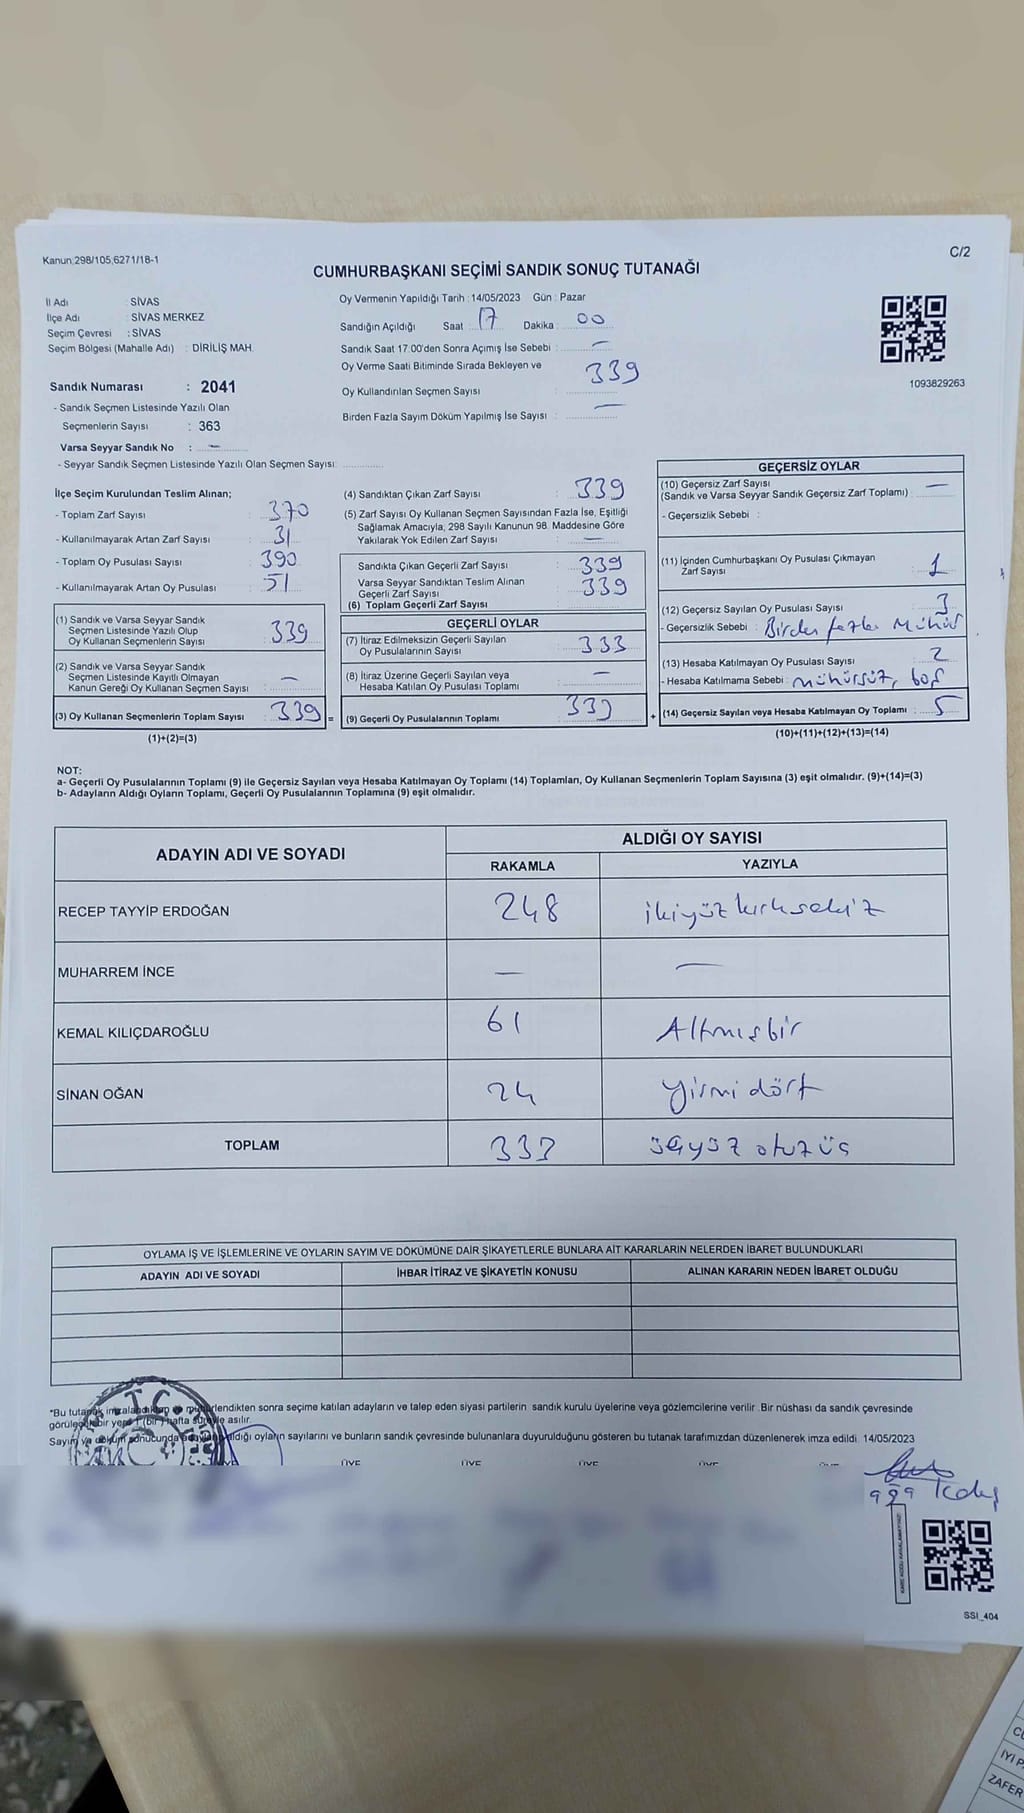 Kanun:298/105,6271/18-1
C/2
CUMHURBAŞKANI SEÇİMİ SANDIK SONUÇ TUTANAĞI
İl Adı : SİVAS
İlçe Adı : SİVAS MERKEZ
Seçim Çevresi : SİVAS
Seçim Bölgesi (Mahalle Adı) : DİRİLİŞ MAH.
Sandık Numarası : 2041
- Sandık Seçmen Listesinde Yazılı Olan
Seçmenlerin Sayısı : 363
Varsa Seyyar Sandık No : —
- Seyyar Sandık Seçmen Listesinde Yazılı Olan Seçmen Sayısı:
Oy Vermenin Yapıldığı Tarih : 14/05/2023 Gün : Pazar
Sandığın Açıldığı Saat : 17 Dakika : 00
Sandık Saat 17:00'den Sonra Açımış İse Sebebi : —
Oy Verme Saati Bitiminde Sırada Bekleyen ve
Oy Kullandırılan Seçmen Sayısı : 339
Birden Fazla Sayım Döküm Yapılmış İse Sayısı : —
1093829263
İlçe Seçim Kurulundan Teslim Alınan;
- Toplam Zarf Sayısı : 370
- Kullanılmayarak Artan Zarf Sayısı : 31
- Toplam Oy Pusulası Sayısı : 390
- Kullanılmayarak Artan Oy Pusulası : 51
(1) Sandık ve Varsa Seyyar Sandık
Seçmen Listesinde Yazılı Olup
Oy Kullanan Seçmenlerin Sayısı : 339
(2) Sandık ve Varsa Seyyar Sandık
Seçmen Listesinde Kayıtlı Olmayan
Kanun Gereği Oy Kullanan Seçmen Sayısı : —
(3) Oy Kullanan Seçmenlerin Toplam Sayısı : 339 =
(1)+(2)=(3)
(4) Sandıktan Çıkan Zarf Sayısı : 339
(5) Zarf Sayısı Oy Kullanan Seçmen Sayısından Fazla İse, Eşitliği
Sağlamak Amacıyla, 298 Sayılı Kanunun 98. Maddesine Göre
Yakılarak Yok Edilen Zarf Sayısı : —
Sandıkta Çıkan Geçerli Zarf Sayısı : 339
Varsa Seyyar Sandıktan Teslim Alınan
Geçerli Zarf Sayısı : 339
(6) Toplam Geçerli Zarf Sayısı
GEÇERLİ OYLAR
(7) İtiraz Edilmeksizin Geçerli Sayılan
Oy Pusulalarının Sayısı : 333
(8) İtiraz Üzerine Geçerli Sayılan veya
Hesaba Katılan Oy Pusulası Toplamı : —
(9) Geçerli Oy Pusulalarının Toplamı : 333 +
GEÇERSİZ OYLAR
(10) Geçersiz Zarf Sayısı
(Sandık ve Varsa Seyyar Sandık Geçersiz Zarf Toplamı) : —
- Geçersizlik Sebebi :
(11) İçinden Cumhurbaşkanı Oy Pusulası Çıkmayan
Zarf Sayısı : 1
(12) Geçersiz Sayılan Oy Pusulası Sayısı : 3
- Geçersizlik Sebebi : Birden fazla mühür
(13) Hesaba Katılmayan Oy Pusulası Sayısı : 2
- Hesaba Katılmama Sebebi : mühürsüz, boş
(14) Geçersiz Sayılan veya Hesaba Katılmayan Oy Toplamı : 5
(10)+(11)+(12)+(13)=(14)
NOT:
a- Geçerli Oy Pusulalarının Toplamı (9) ile Geçersiz Sayılan veya Hesaba Katılmayan Oy Toplamı (14) Toplamları, Oy Kullanan Seçmenlerin Toplam Sayısına (3) eşit olmalıdır. (9)+(14)=(3)
b- Adayların Aldığı Oyların Toplamı, Geçerli Oy Pusulalarının Toplamına (9) eşit olmalıdır.
ADAYIN ADI VE SOYADI
ALDIĞI OY SAYISI
RAKAMLA YAZIYLA
RECEP TAYYİP ERDOĞAN 248 ikiyüz kırksekiz
MUHARREM İNCE — —
KEMAL KILIÇDAROĞLU 61 Altmışbir
SİNAN OĞAN 24 yirmi dört
TOPLAM 333 üçyüz otuzüç
OYLAMA İŞ VE İŞLEMLERİNE VE OYLARIN SAYIM VE DÖKÜMÜNE DAİR ŞİKAYETLERLE BUNLARA AİT KARARLARIN NELERDEN İBARET BULUNDUKLARI
ADAYIN ADI VE SOYADI İHBAR İTİRAZ VE ŞİKAYETİN KONUSU ALINAN KARARIN NEDEN İBARET OLDUĞU
*Bu tutanak imzalandıktan ve mühürlendikten sonra seçime katılan adayların ve talep eden siyasi partilerin sandık kurulu üyelerine veya gözlemcilerine verilir. Bir nüshası da sandık çevresinde
görülecek bir yere 1 (bir) hafta süreyle asılır.
Sayım ve döküm sonucunda adayların aldığı oyların sayılarını ve bunların sandık çevresinde bulunanlara duyurulduğunu gösteren bu tutanak tarafımızdan düzenlenerek imza edildi. 14/05/2023
T.C.
ÜYE ÜYE ÜYE ÜYE
SSI_404
İYİ P
ZAFER